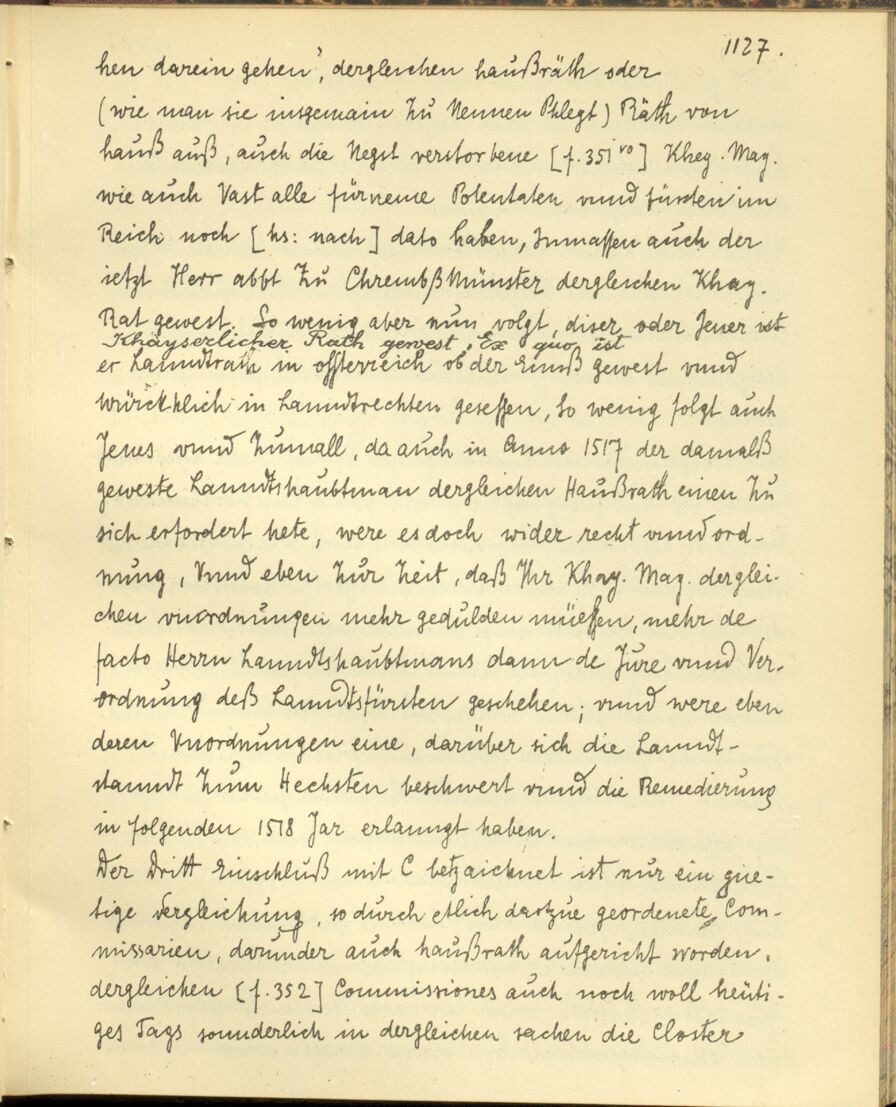 1127.
hen darein gehen, dergleichen haußräth oder
(wie man sie insgemain Zu Nennen Phlegt) Räth von
hauß auß, auch die Negst verstorbene [f. 351vo] Khey. May.
wie auch Vast alle fürneme Potentaten vnnd fürsten im
Reich noch [hs: nach] dato haben, Inmassen auch der
ietzt Herr abbt Zu ChrembßMünster dergleichen Khay.
Rat gewest. So wenig aber nun volgt, diser oder Jener ist
Khayserlicher Rath gewest. Ex quo ist
er Lanndtrath in össterreich ob der Ennß gewest vnnd
würckhlich in Lanndtrechten gesessen, So wenig folgt auch
Jenes vnnd Zumall, da auch in Anno 1517 der damalß
geweste Lanndtshaubtman dergleichen Haußrath einen Zu
sich erfordert hete, were es doch wider recht vnnd ord-
nung, Vnnd eben Zur Zeit, daß Ihr Khay. May. derglei-
chen vnordnungen mehr gedulden müessen, mehr de
facto Herrn Lanndtshaubtmans dann de Jure vnnd Ver-
ordnung deß Lanndtsfürsten geschehen; vnnd were eben
deren Vnordnungen eine, darüber sich die Lanndt-
stanndt Zum Hechsten beschwert vnnd die Remedierung
in folgenden 1518 Jar erlanngt haben.
Der Dritt Einschluß mit C betzaichnet ist nur ein güe-
tige Vergleichung, so durch etlich dartzue geordenete Com-
missarien, darunder auch haußrath aufgericht worden,
dergleichen [f. 352] Commissiones auch noch woll heüti-
ges Tags sonnderlich in dergleichen sachen die Closter